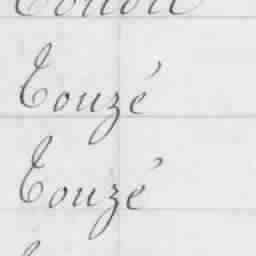 Touzé
Touzé